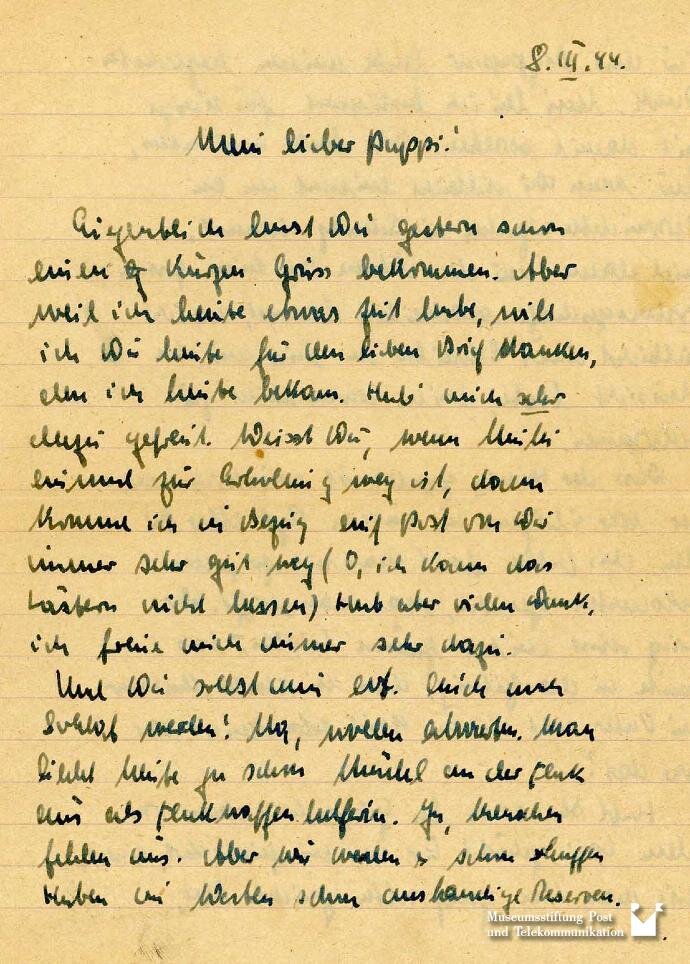 8.III.44.
Mein lieber Puppi!
Eigentlich hast Du gestern schon
einen kurzen Gruss bekommen. Aber
weil ich heute etwas Zeit habe, will
ich Dir heute für den lieben Brief danken,
den ich heute bekam. Hab' mich sehr
dazu gefreut. Weisst Du, wenn Mutti
einmal zur Erholung weg ist, dann
komme ich in Bezug auf Post von Dir
immer sehr gut weg (O, ich kann das
Lästern nicht lassen) Hab aber vielen Dank,
ich freue mich immer sehr dazu.
Und Du sollst nun evt. auch noch
Soldat werden! Na, wollen abwarten. Man
sieht heute ja schon Mädel an der Flak
aus als Flakwaffenhelferin. Ja, Menschen
fehlen uns. Aber wir werden es schon schaffen
Haben im Westen schon anständige Reserven.
Museumsstiftung Post
und Telekommunikation